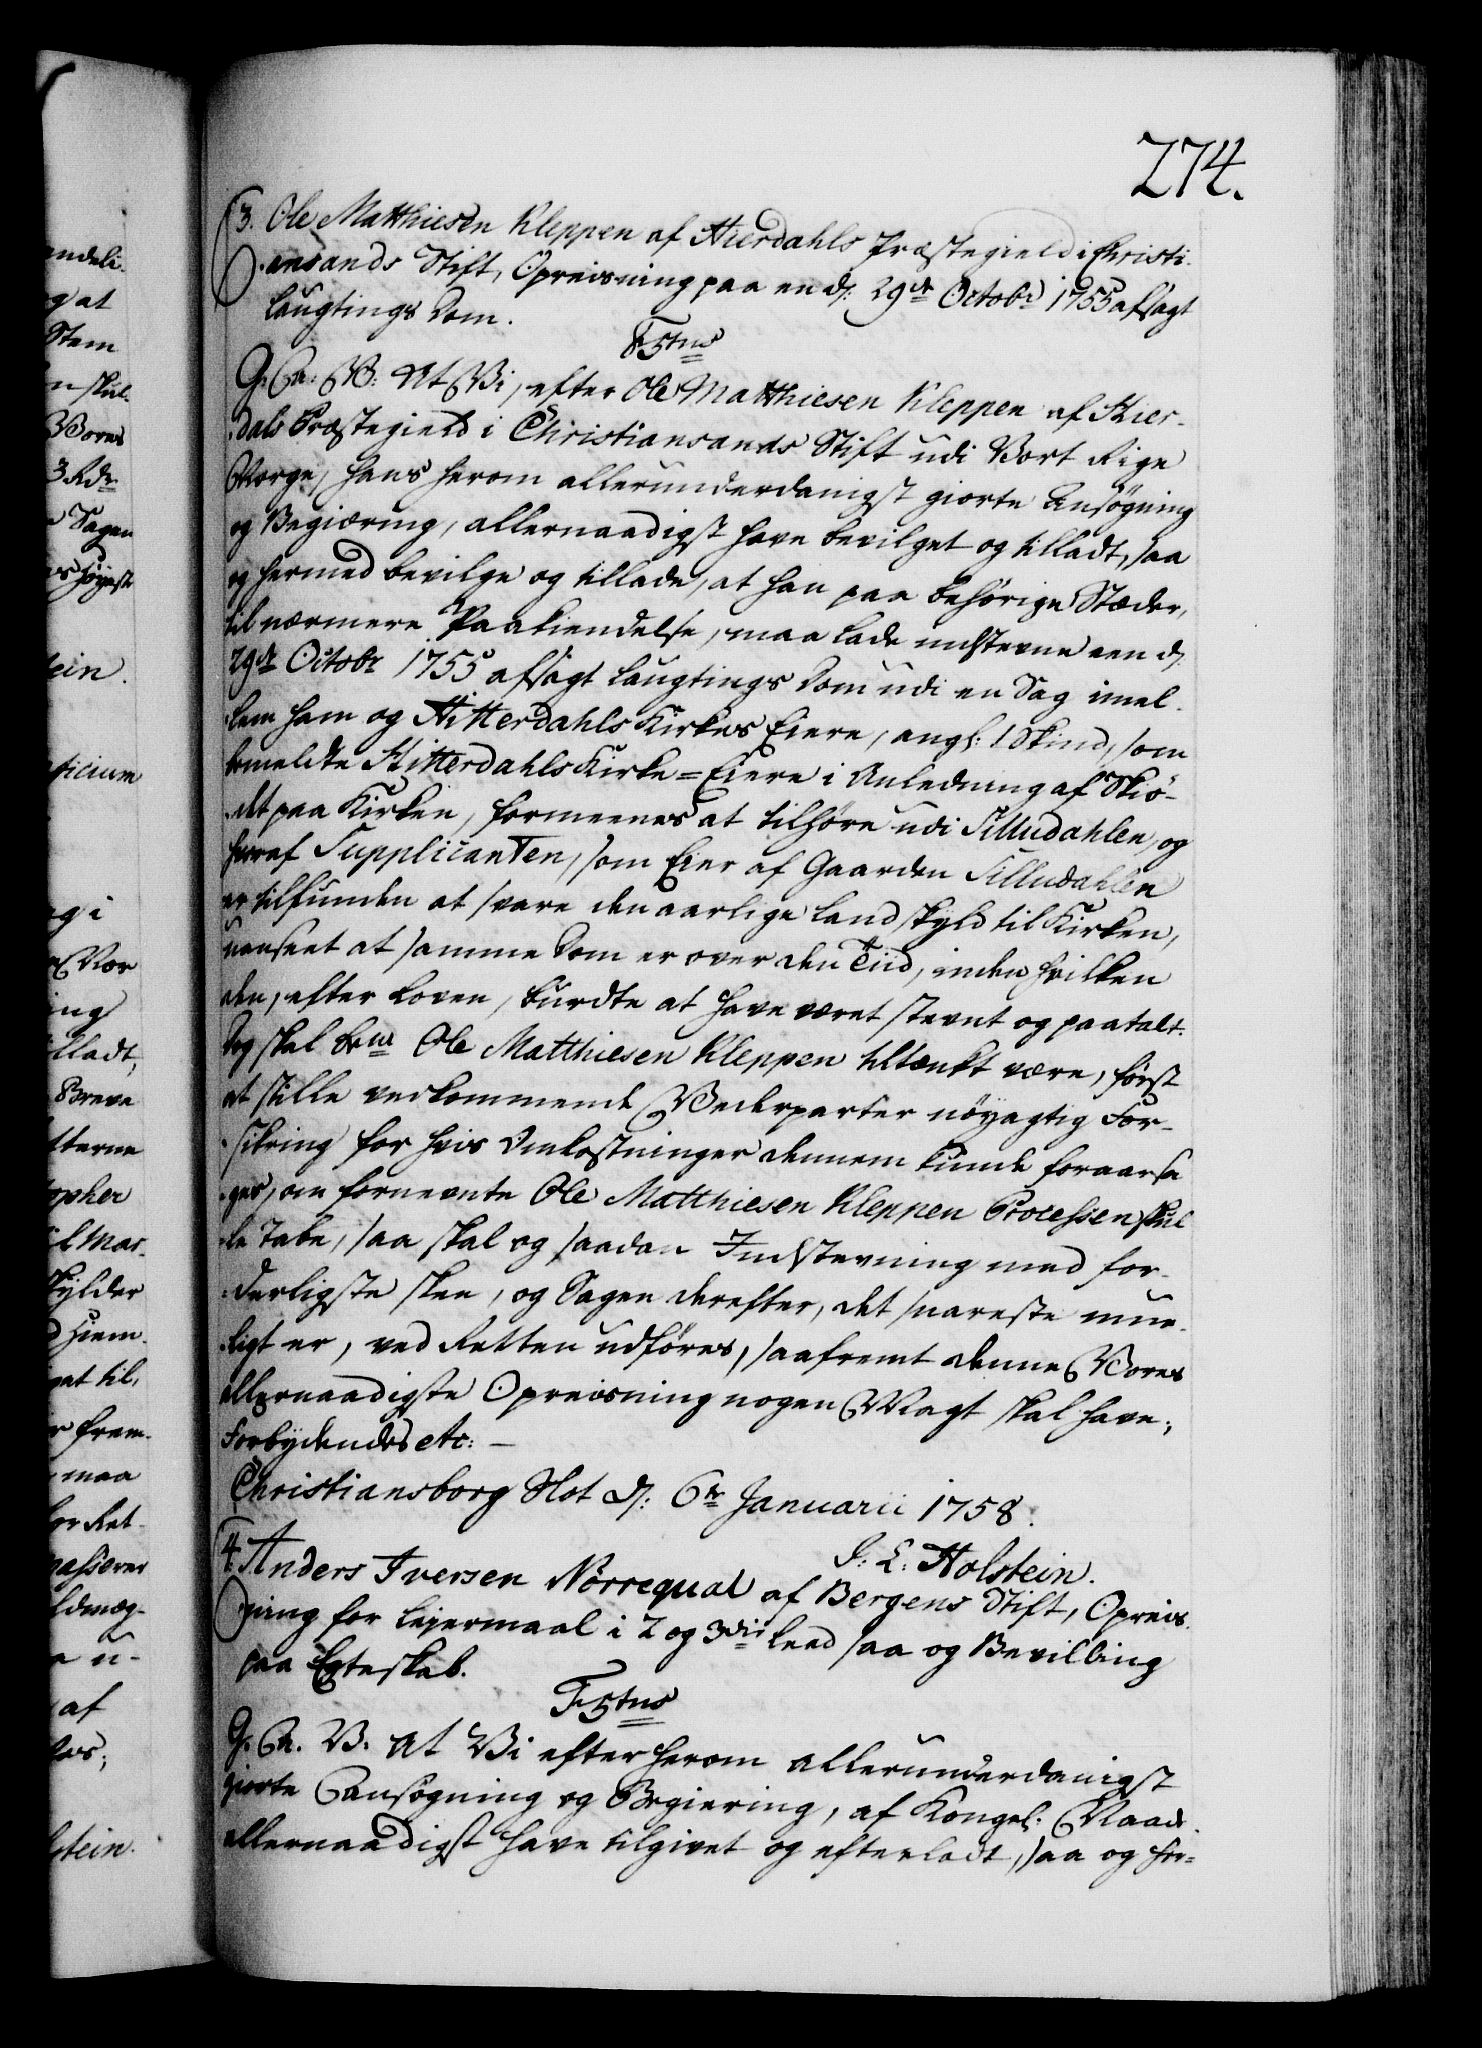 274.
3. Ole Matthiesen Kleppen af Hierdahls Præstegield i Christi-
ansands Stift, Opreisning paa en d: 29de Octobr 1755 afsagt
Laugtings Dom.
F5tus
G: A: V: At Vi, efter Ole Matthiesen Kleppen af Hier-
dals Præstegield i Christiansands Stift udi Vort Rige
Norge, hans herom allerunderdanigst giorte Ansøgning
og Begiæring, allernaadigst have bevilget og tilladt, saa
og hermed bevilge og tillade, at han paa behørige Stæder,
til nærmere Paakiendelse, maa lade indstevne een d:
29de Octobr 1755 afsagt Laugtings Dom udi en Sag imel-
lem ham og Hitterdahls Kirkes Eiere, angl: 1 Skind, som
bemeldte Hitterdahls Kirke-Eiere i Anledning af Skiö-
det paa Kirken, formeenes at tilhøre udi Silludahlen, og
hvoraf Supplicanten, som Eier af Gaarden Silludahlen
er tilfunden at svare den aarlige Landskyld til Kirken,
uanseet at samme Dom er over den Tiid, inden hvilken
den, efter Loven, burdte at have været stevnt og paatalt.
Dog skal bem Ole Matthiesen Kleppen tiltænkt være, først
at stille vedkommende Vederparter nöyagtig For-
sikring for hvis Omkostninger dennem kunde foraarsa
ges, om fornevnte Ole Matthiesen Kleppen Processen skul
le tabe, saa skal og saadan Indstevning med for-
derligste skee, og Sagen derefter, det snareste mue-
ligt er, ved Retten udføres, saafremt denne Vores
allernaadigste Opreisning nogen Magt skal have;
Forbydendes etc: -
Christiansborg Slot d: 6te Januarii 1758.
J: L: Holstein.
4. Anders Iversen Nörrequal af Bergens Stift, Opreis-
ning for Lejermaal i 2 og 3die Leed saa og Bevilling
paa Egteskab.
F5tus
G. A. V. At Vi efter herom allerunderdanigst
giorte Ansøgning og Begiering, af Kongel: Naade
allernaadigst have tilgivet og efterladt, saa og her-